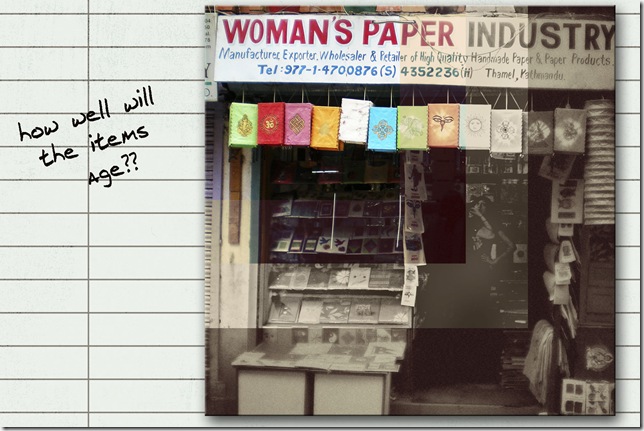 how well will
the items
age??
WOMAN'S PAPER INDUSTRY
Manufacturer, Exporter, Wholesaler & Retailer of High Quality Handmade Paper & Paper Products.
Tel:977-1-4700876(S) 4352236(H) Thamel, Kathmandu.